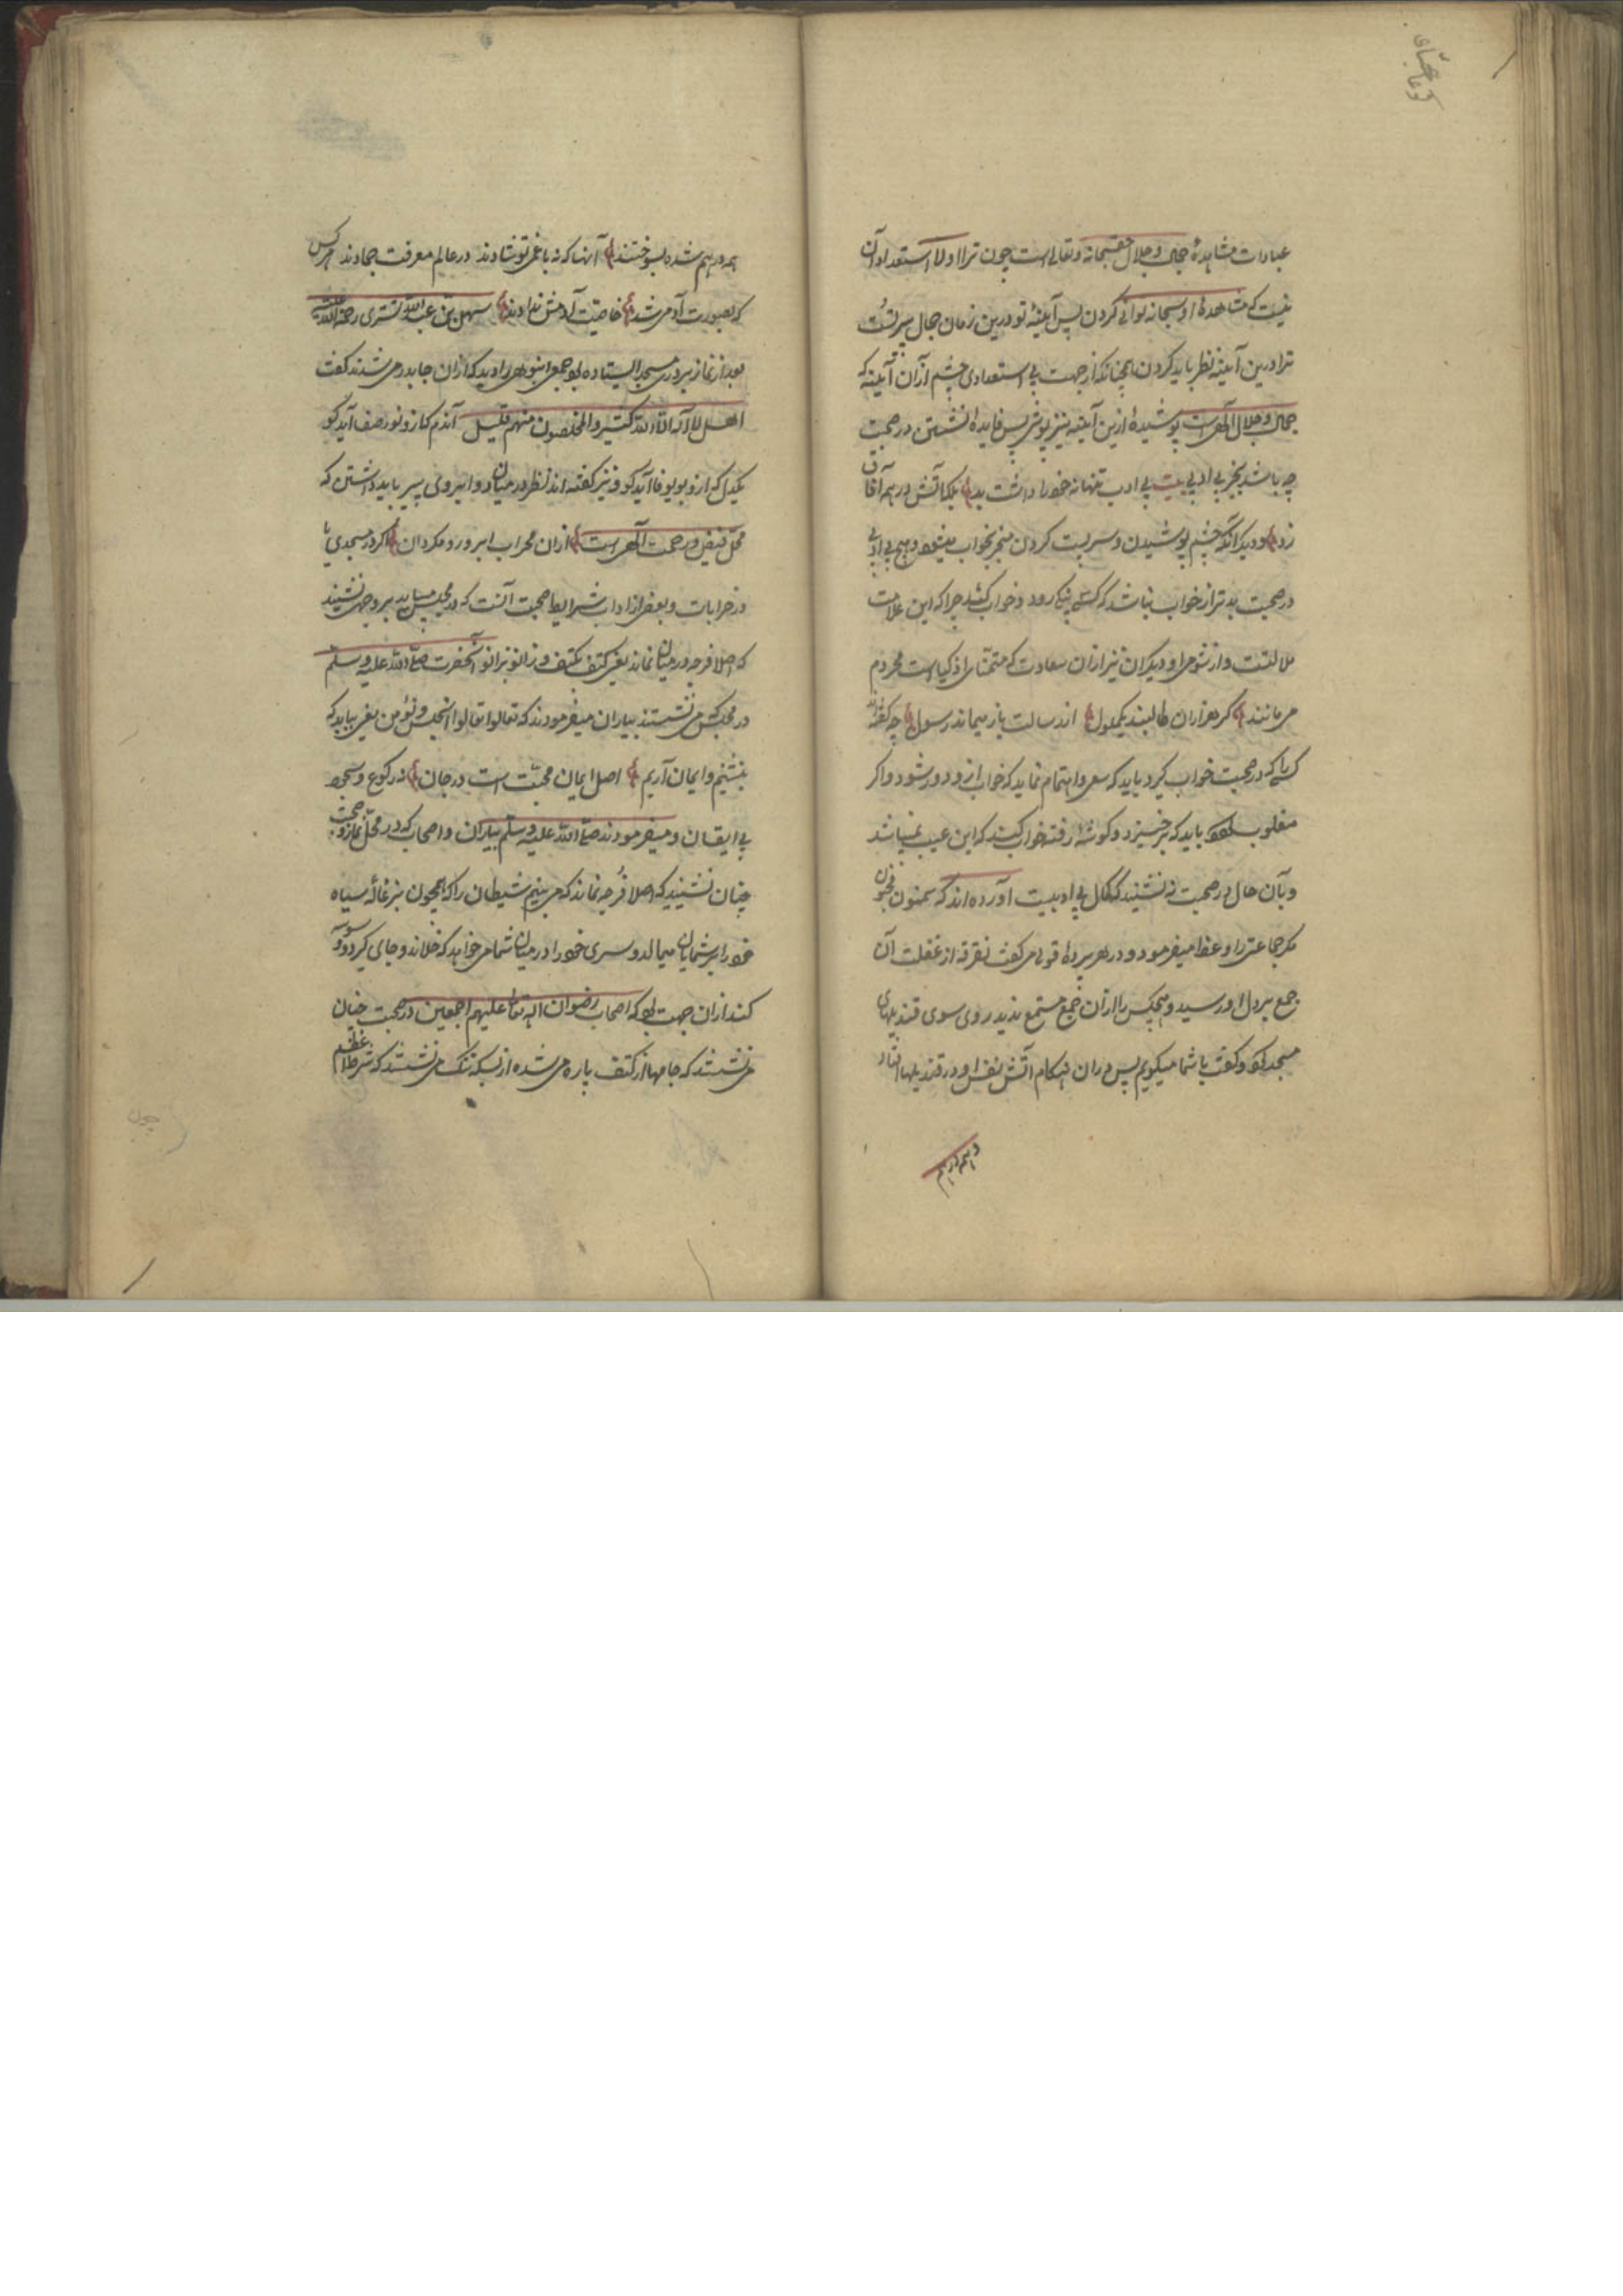 عبادات مشاهدهٔ جمال و جلال حق سبحانه و تعالی است چون ترا اولا استعداد آن
نیست که مشاهدهٔ او سبحانه توانی کردن پس آیینهٔ تو درین زمان جمال پیر تست
ترا درین آیینه نظر باید کردن همچنانکه از جهت بی استعدادی چشم از آن آیینه که
جمال و جلال الهی است پوشیدهٔ ازین آیینه نیز پوشی پس فایدهٔ نشستن در صحبت
چه باشد بجز بی ادبی بیت بی ادب تنها نه خود را داشت بد بلکه آتش در همه آفاق
زد و دیگر آنکه چشم پوشیدن و سر پست کردن منجر بخواب میشود و هیچ بی ادبی
در صحبت بدتر از خواب نباشد که کسی پنکی رود و خواب کند چرا که این علامت
ملالتست و از شومی او دیگران نیز از آن سعادت که متمنای اذکیاست محروم
می مانند گر هزاران طالبند یک ملول از رسالت باز میماند رسول چه گفته اند
کسی را که در صحبت خواب گیرد باید که سعی و اهتمام نماید که خواب ازو دور شود و اگر
مغلوب بود باید که برخیزد و گوشهٔ رفته خواب کند که این عیب نمیباشد
و بآن حال در صحبت نه نشیند که کمال بی ادبیست آورده اند که سمنون مجنون
مگر جماعتی را وعظ میفرمود و در هر پردهٔ قولی می گفت تفرقه از غفلت آن
جمع بر دل او رسید و هیچکس را از آن جمع مستمع ندید روی سوی قندیلهای
مسجد کرد و گفت با شما میگویم پس در آن هنگام آتش نفس او در قندیلها افتاد
و همه درهم
همه درهم شده بسوختند آنها که نه با غم تو شادند در عالم معرفت جمادند هر کس
که بصورت آدمی شد خاصیت آدمش ندادند سهل بن عبدالله تستری رحمة الله علیه
بعد از نماز بر در مسجد ایستاده بود جمعی انبوهی را دید که از آن جا بدر می شدند گفت
اهل لا اله الا الله کثیر و المخلصون منهم قلیل آندم کزو نور صفا آید کو
یکدل که ازو بوی وفا آید کو و نیز گفته اند نظر در میان دو ابروی پیر باید داشتن که
محل فیض و رحمت الهی است از آن محراب ابرو رو مگردان اگر در مسجدی یا
در خرابات و بعضی از آداب شرایط صحبت آنست که در مجلس باید بر وجهی نشیند
که اصلا فرجه در میان نماند یعنی کتف بکتف و زانو بزانو آنحضرت صلی الله علیه و سلم
در مجلس می نشستند بیاران میفرمودند که تعالوا تعالوا نجلس و نؤمن یعنی بیایید که
بنشینیم و ایمان آریم اصل ایمان محبت است در جان نه رکوع و سجود
بی ایقان و میفرمودند صلی الله علیه و سلم بیاران و اصحاب که در محل نماز و صحبت
چنان نشینید که اصلا فرجه نماند که می بینم شیطان را که همچون بزغالهٔ سیاه
خود را بر شمایان میمالد و سری خود را در میان شما می خواهد که خلاند و جای گیرد و وسوسه
کند از آن جهت بود که اصحاب رضوان الله تعالی علیهم اجمعین در صحبت چنان
می نشستند که جامها از کتف پاره می شده از بسکه تنگ می نشستند که شرط اعظم